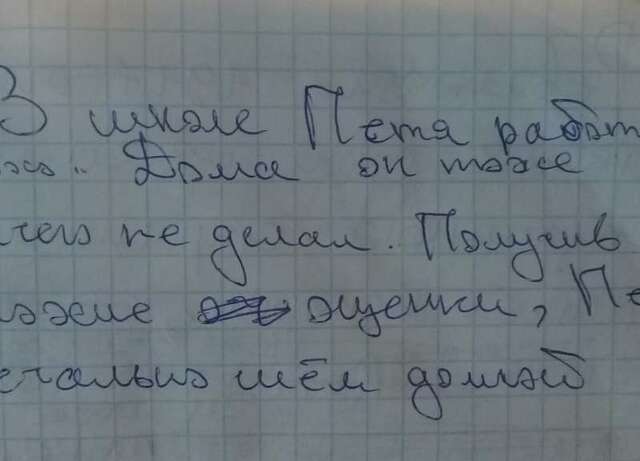 В школе Петя работ
хо. Дома он тоже
чего не делал. Получив
лохие оценки, Пе
ечально шёл домой